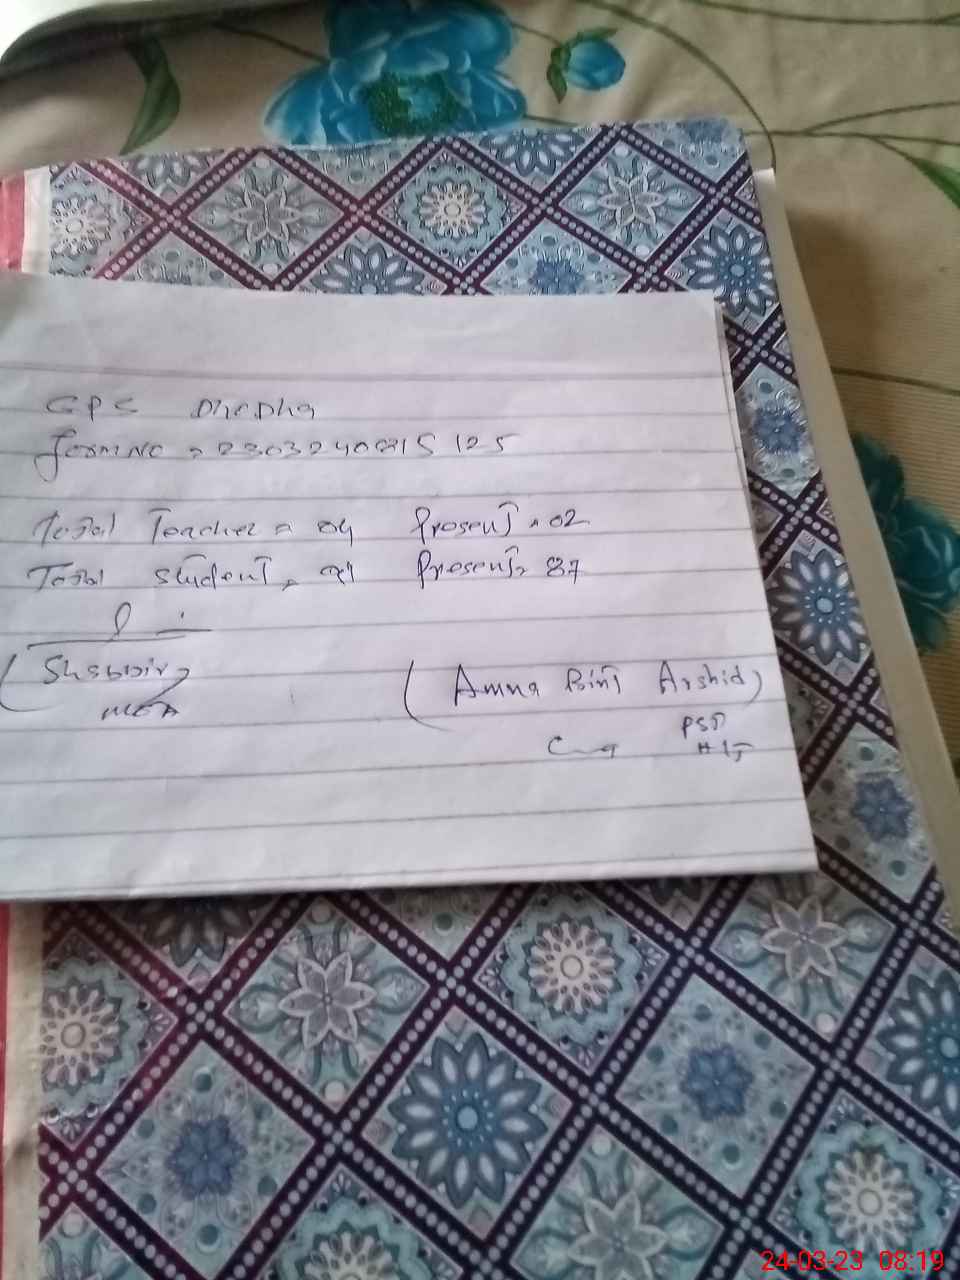 GPS Dhedha
Form No = 230324
Total Teacher = 04 Present = 02
Total Student = 91 Present = 87
(Shabbir)
MEA
(Amna Bint Arshid)
PST
24-03-23 08:19